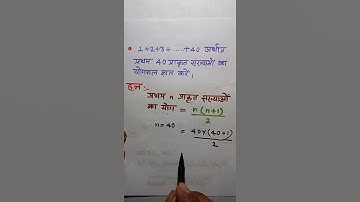 • 1+2+3+ .... +40 अर्थात्
प्रथम 40 प्राकृत संख्याओं का
योगफल ज्ञात करें।
हल:-
प्रथम n प्राकृत संख्याओं
का योग = n(n+1)/2
n=40
= 40×(40+1)/2